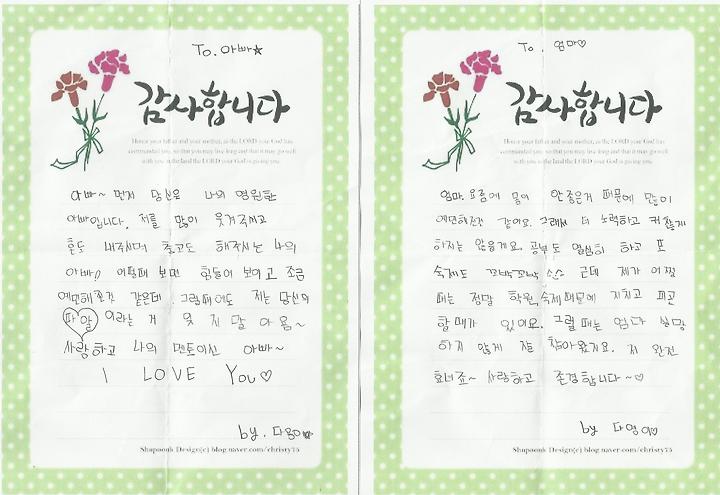 To. 아빠★
감사합니다
Honor your father and your mother, as the LORD your God has
commanded you, so that you may live long and that it may go well
with you in the land the LORD your God is giving you.
아빠~ 먼저 당신은 나의 영원한
아빠입니다. 저를 많이 웃겨주시고
혼도 내주시며 충고도 해주시는 나의
아빠! 어떨때 보면 힘들어 보이고 조금
예민해진것 같은데 그럴때에도 저는 당신의
파 알 이라는 거 잊지 말아욤~
사랑하고 나의 멘토이신 아빠~
I LOVE You♡
by. 다영
Shapoouk Design(c) blog.naver.com/christy75
To. 엄마♡
감사합니다
Honor your father and your mother, as the LORD your God has
commanded you, so that you may live long and that it may go well
with you in the land the LORD your God is giving you.
엄마 요즘에 몸이 안좋은거 때문에 많이
예민해진것 같아요. 그래서 더 노력하고 귀찮게
하지는 않을게요. 공부도 열심히 하고 또
숙제도 꼬박꼬박 근데 제가 어쩔
때는 정말 학원, 숙제때문에 지치고 피곤
할 때가 있어요. 그럴 때는 엄마 실망
하지 않게 잘 참아왔지요. 저 완전
효녀죠~ 사랑하고 존경합니다~♡
by 다영이♡
Shapoouk Design(c) blog.naver.com/christy75